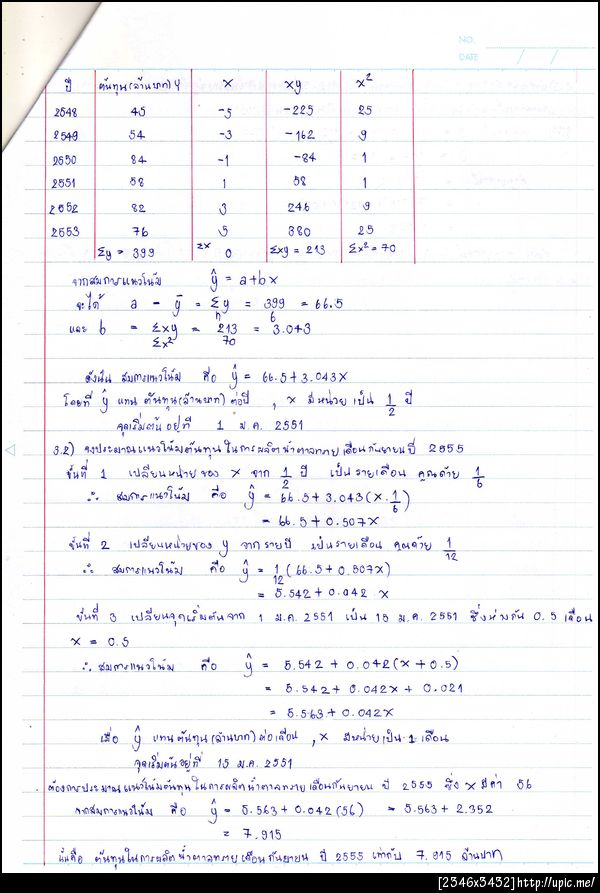 NO.
DATE / /
ปี ต้นทุน(ล้านบาท) y x xy x²
2548 45 -5 -225 25
2549 54 -3 -162 9
2550 84 -1 -84 1
2551 58 1 58 1
2552 82 3 246 9
2553 76 5 380 25
Σy = 399 Σx 0 Σxy = 213 Σx² = 70
จากสมการแนวโน้ม ŷ = a+bx
จะได้ a = ȳ = Σy/n = 399/6 = 66.5
และ b = Σxy/Σx² = 213/70 = 3.043
ดังนั้น สมการแนวโน้ม คือ ŷ = 66.5+3.043x
โดยที่ ŷ แทน ต้นทุน(ล้านบาท) ต่อปี , x มีหน่วย เป็น 1/2 ปี
จุดเริ่มต้น อยู่ที่ 1 ม.ค. 2551
3.2) จงประมาณแนวโน้มต้นทุน ในการผลิตน้ำตาลทราย เดือนกันยายน ปี 2555
ขั้นที่ 1 เปลี่ยนหน่วย ของ x จาก 1/2 ปี เป็นรายเดือน คูณด้วย 1/6
∴ สมการแนวโน้ม คือ ŷ = 66.5+3.043(x.1/6)
= 66.5+0.507x
ขั้นที่ 2 เปลี่ยนหน่วยของ y จากรายปี เป็นรายเดือน คูณด้วย 1/12
∴ สมการแนวโน้ม คือ ŷ = 1/12(66.5+0.507x)
= 5.542+0.042 x
ขั้นที่ 3 เปลี่ยนจุดเริ่มต้นจาก 1 ม.ค. 2551 เป็น 15 ม.ค. 2551 ซึ่งห่างกัน 0.5 เดือน
x = 0.5
∴ สมการแนวโน้ม คือ ŷ = 5.542 + 0.042(x+0.5)
= 5.542+0.042x+0.021
= 5.563+0.042x
เมื่อ ŷ แทนต้นทุน(ล้านบาท) ต่อเดือน , x มีหน่วยเป็น 1 เดือน
จุดเริ่มต้นอยู่ที่ 15 ม.ค. 2551
ต้องการประมาณแนวโน้มต้นทุน ในการผลิตน้ำตาลทราย เดือนกันยายน ปี 2555 ซึ่ง x มีค่า 56
จากสมการแนวโน้ม คือ ŷ = 5.563+0.042(56) = 5.563+2.352
= 7.915
นั่นคือ ต้นทุนในการผลิตน้ำตาลทราย เดือนกันยายน ปี 2555 เท่ากับ 7.915 ล้านบาท
[2346x3432]http://upic.me/